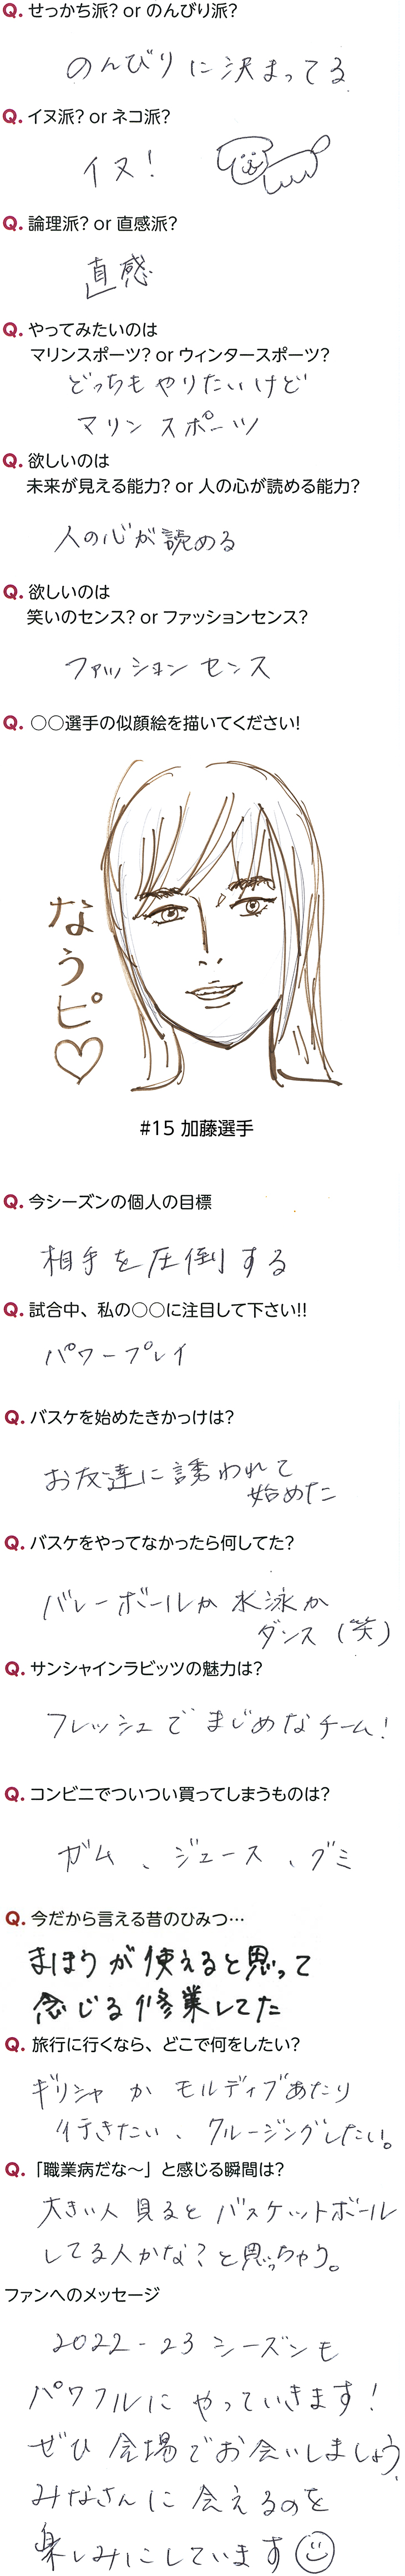 Q. せっかち派? or のんびり派?
のんびりに決まってる
Q. イヌ派? or ネコ派?
イヌ!
Q. 論理派? or 直感派?
直感
Q. やってみたいのは
マリンスポーツ? or ウィンタースポーツ?
どっちもやりたいけど
マリンスポーツ
Q. 欲しいのは
未来が見える能力? or 人の心が読める能力?
人の心が読める
Q. 欲しいのは
笑いのセンス? or ファッションセンス?
ファッションセンス
Q. ○○選手の似顔絵を描いてください!
なうピ♡
#15 加藤選手
Q. 今シーズンの個人の目標
相手を圧倒する
Q. 試合中、私の○○に注目して下さい!!
パワープレイ
Q. バスケを始めたきかっけは?
お友達に誘われて
始めた
Q. バスケをやってなかったら何してた?
バレーボールか水泳か
ダンス(笑)
Q. サンシャインラビッツの魅力は?
フレッシュでまじめなチーム!
Q. コンビニでついつい買ってしまうものは?
ガム、ジュース、グミ
Q. 今だから言える昔のひみつ…
まほうが使えると思って
念じる修業してた
Q. 旅行に行くなら、どこで何をしたい?
ギリシャかモルディブあたり
行きたい、クルージングしたい。
Q. 「職業病だな〜」と感じる瞬間は?
大きい人見るとバスケットボール
してる人かな?と思っちゃう。
ファンへのメッセージ
2022-23シーズンも
パワフルにやっていきます!
ぜひ会場でお会いしましょう。
みなさんに会えるのを
楽しみにしています☺